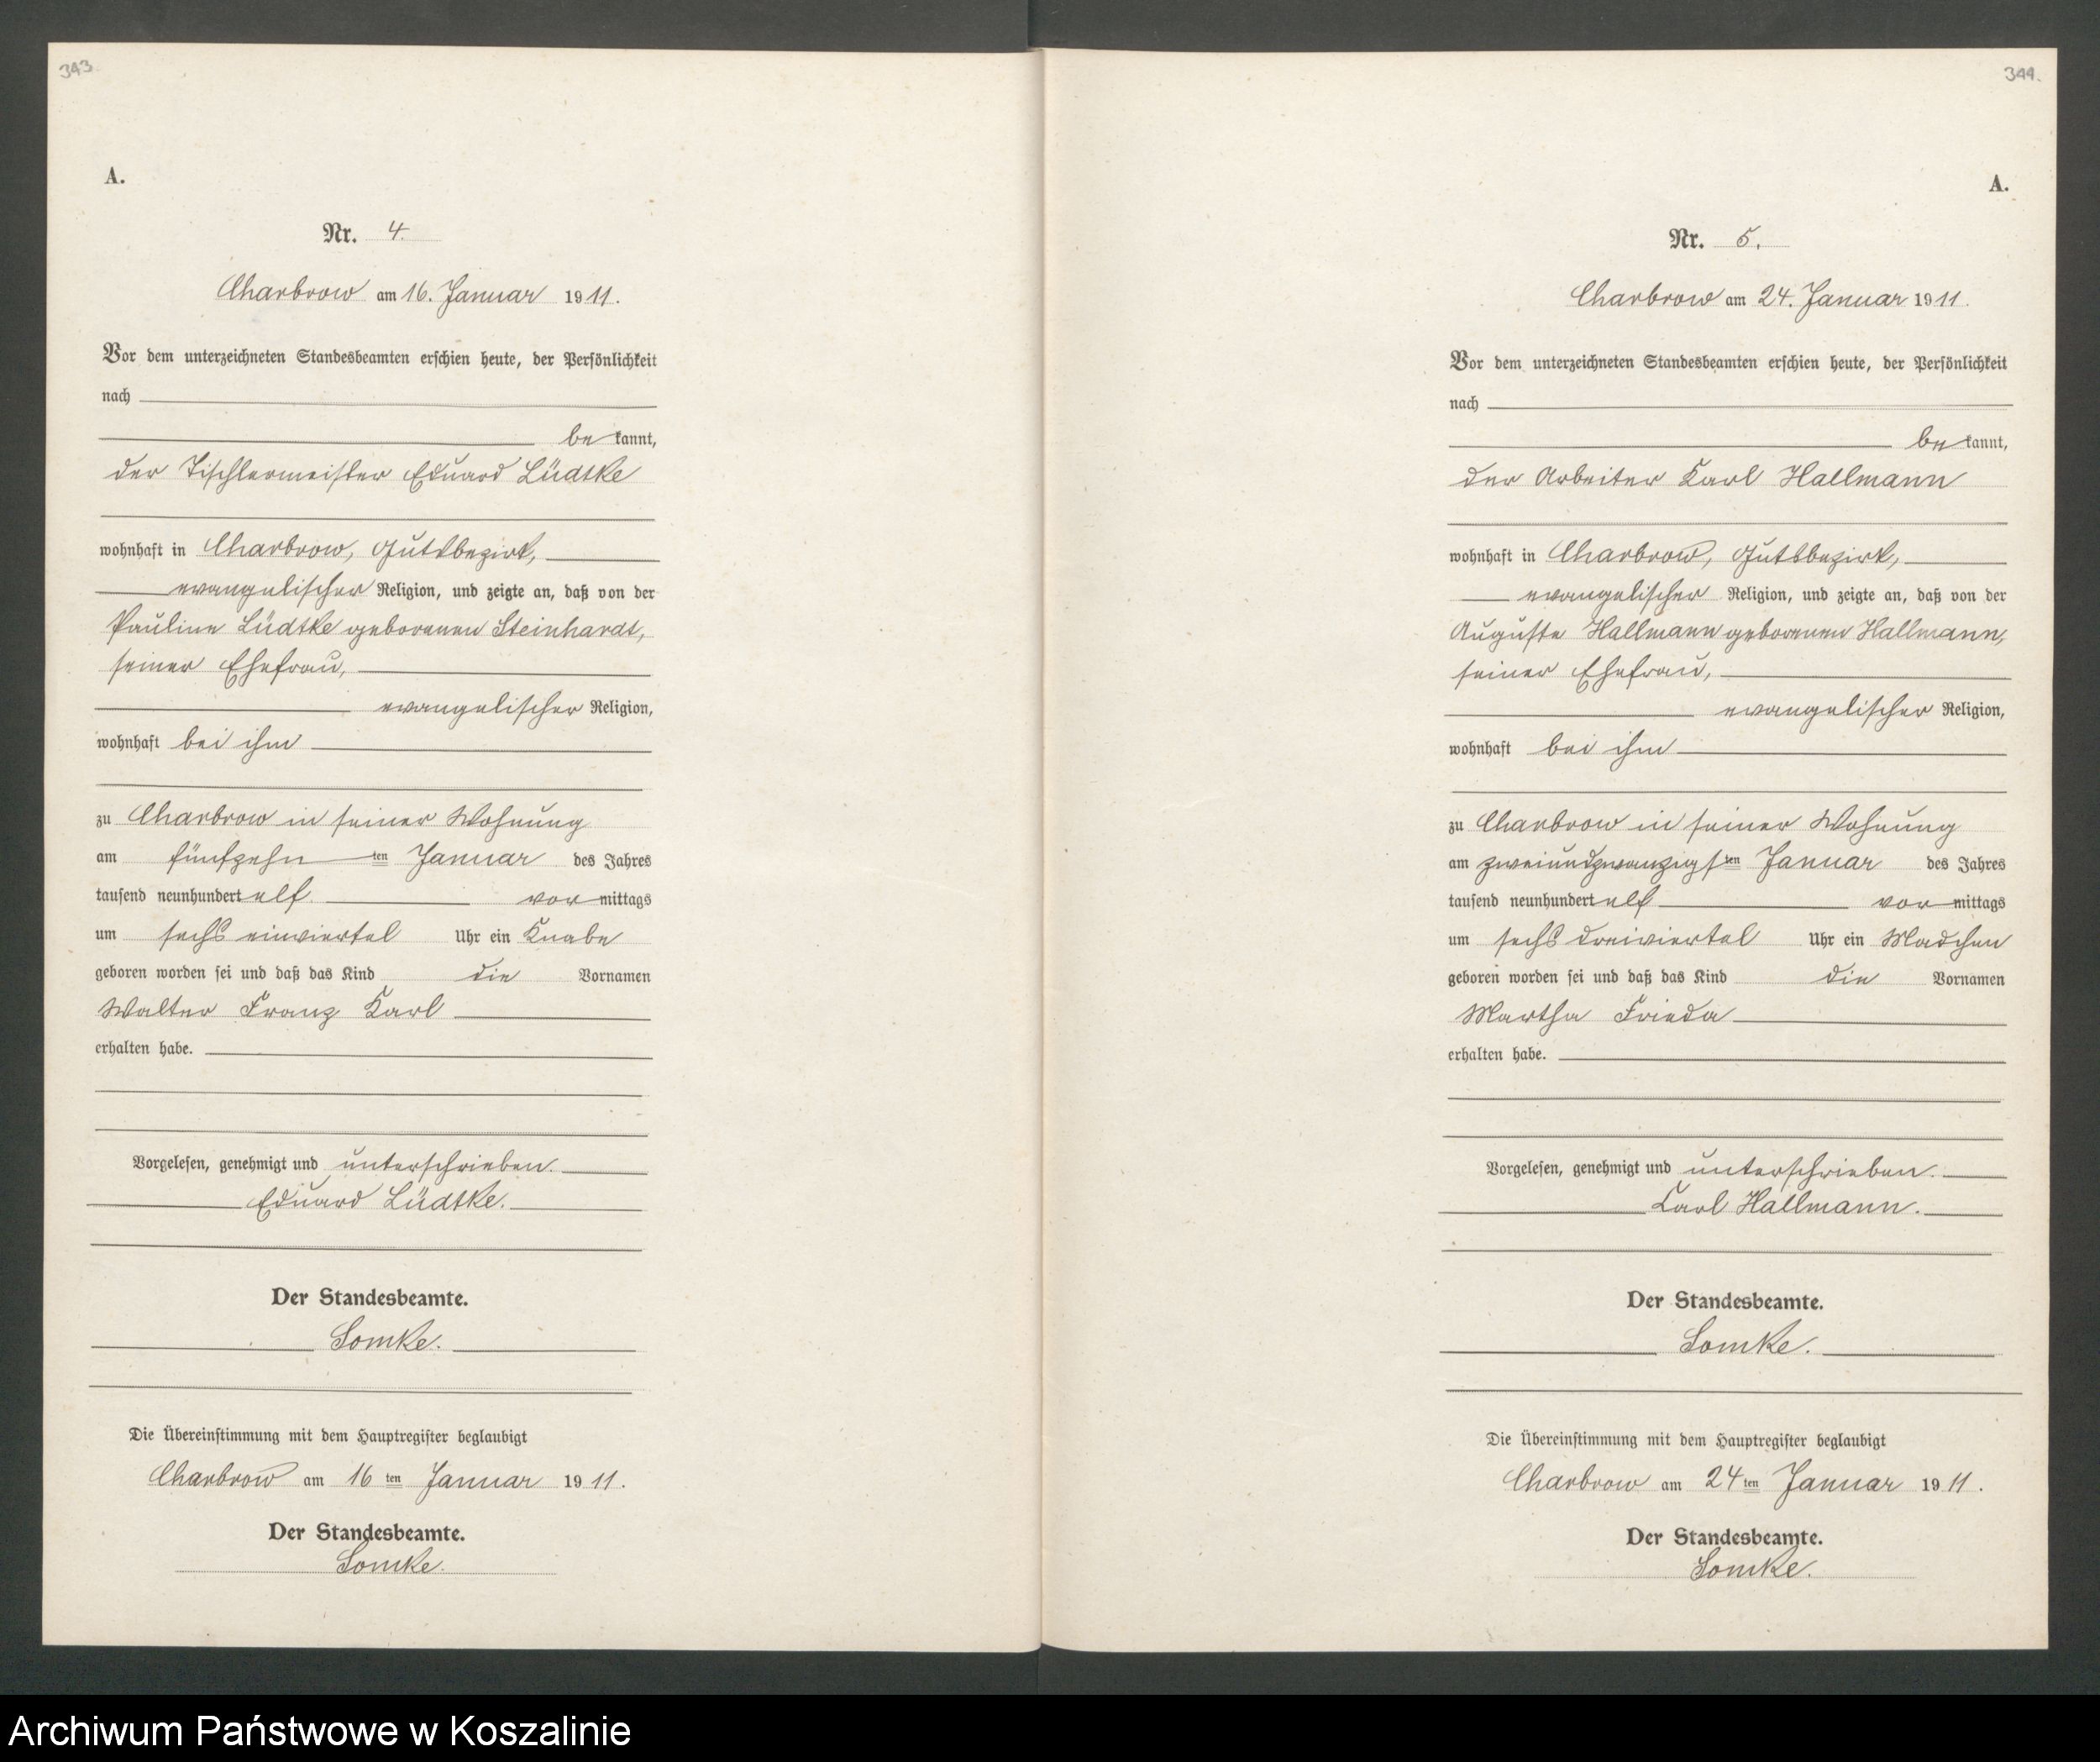 343.
A.
Nr. 4.
Charbrow am 16. Januar 1911.
Vor dem unterzeichneten Standesbeamten erschien heute, der Persönlichkeit
nach
be kannt,
der Tischlermeister Eduard Lüdtke
wohnhaft in Charbrow, Gutsbezirk,
evangelischer Religion, und zeigte an, daß von der
Pauline Lüdtke geborenen Steinhardt,
seiner Ehefrau,
evangelischer Religion,
wohnhaft bei ihm
zu Charbrow in seiner Wohnung
am fünfzehn ten Januar des Jahres
tausend neunhundert elf vor mittags
um sechs einviertel Uhr ein Knabe
geboren worden sei und daß das Kind die Vornamen
Walter Franz Karl
erhalten habe.
Vorgelesen, genehmigt und unterschrieben.
Eduard Lüdtke.
Der Standesbeamte.
Lomke.
Die Übereinstimmung mit dem Hauptregister beglaubigt
Charbrow am 16 ten Januar 1911.
Der Standesbeamte.
Lomke.
344.
A.
Nr. 5.
Charbrow am 24. Januar 1911.
Vor dem unterzeichneten Standesbeamten erschien heute, der Persönlichkeit
nach
be kannt,
der Arbeiter Karl Hallmann
wohnhaft in Charbrow, Gutsbezirk,
evangelischer Religion, und zeigte an, daß von der
Auguste Hallmann geborenen Hallmann,
seiner Ehefrau,
evangelischer Religion,
wohnhaft bei ihm
zu Charbrow in seiner Wohnung
am zweiundzwanzigs ten Januar des Jahres
tausend neunhundert elf vor mittags
um sechs dreiviertel Uhr ein Mädchen
geboren worden sei und daß das Kind die Vornamen
Martha Frieda
erhalten habe.
Vorgelesen, genehmigt und unterschrieben.
Carl Hallmann.
Der Standesbeamte.
Lomke.
Die Übereinstimmung mit dem Hauptregister beglaubigt
Charbrow am 24 ten Januar 1911.
Der Standesbeamte.
Lomke.
Archiwum Państwowe w Koszalinie